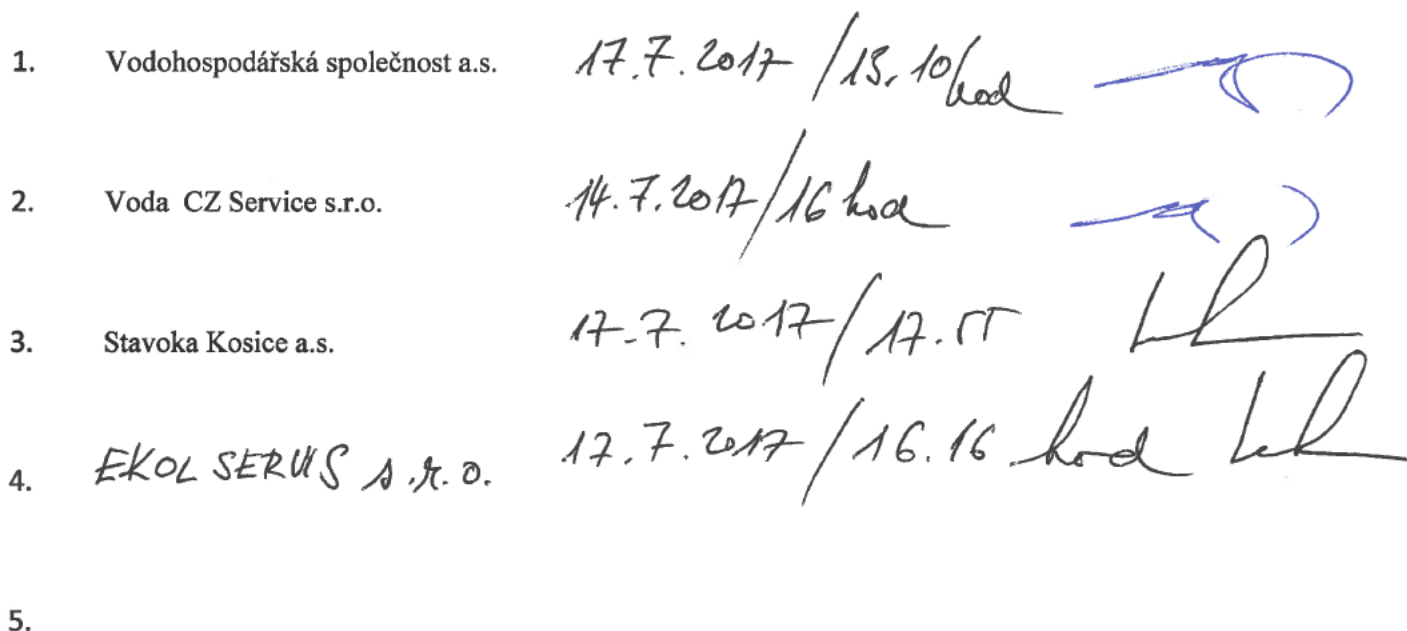 1. Vodohospodářská společnost a.s. 17.7.2017 / 13.10 hod
2. Voda CZ Service s.r.o. 14.7.2017 / 16 hod
3. Stavoka Kosice a.s. 17.7.2017 / 17.
4. EKOL SERVIS s.r.o. 17.7.2017 / 16.16 hod
5.